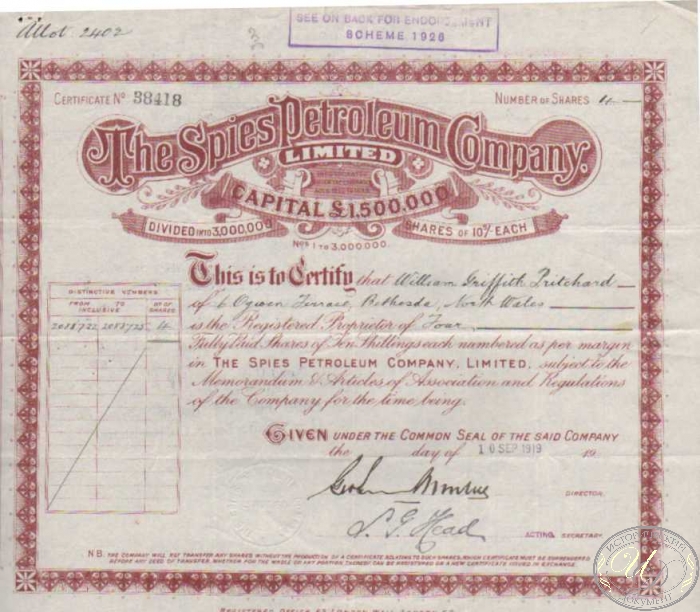 Allot 2402
SEE ON BACK FOR ENDORSEMENT
SCHEME 1926
CERTIFICATE No 38418
NUMBER OF SHARES 4
The Spies Petroleum Company.
LIMITED
CAPITAL £1,500,000
DIVIDED INTO 3,000,000 SHARES OF 10/- EACH
Nos 1 TO 3,000,000.
This is to Certify that William Griffith Pritchard
of 6 Ogwen Terrace, Bethesda, North Wales
is the Registered Proprietor of Four
Fully Paid Shares of Ten Shillings each numbered as per margin
in THE SPIES PETROLEUM COMPANY, LIMITED, subject to the
Memorandum & Articles of Association and Regulations
of the Company for the time being.
DISTINCTIVE NUMBERS
FROM TO No OF
INCLUSIVE SHARES
4
GIVEN UNDER THE COMMON SEAL OF THE SAID COMPANY
the day of 10 SEP 1919 19
DIRECTOR.
S. G. Head
ACTING SECRETARY
N.B. THE COMPANY WILL NOT TRANSFER ANY SHARES WITHOUT THE PRODUCTION OF A CERTIFICATE RELATING TO SUCH SHARES, WHICH CERTIFICATE MUST BE SURRENDERED
BEFORE ANY DEED OF TRANSFER, WHETHER FOR THE WHOLE OR ANY PORTION THEREOF CAN BE REGISTERED OR A NEW CERTIFICATE ISSUED IN EXCHANGE.
ИСТОРИЧЕСКИЙ
ДОКУМЕНТ